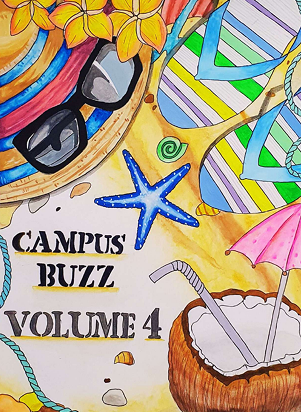 CAMPUS
BUZZ
VOLUME 4